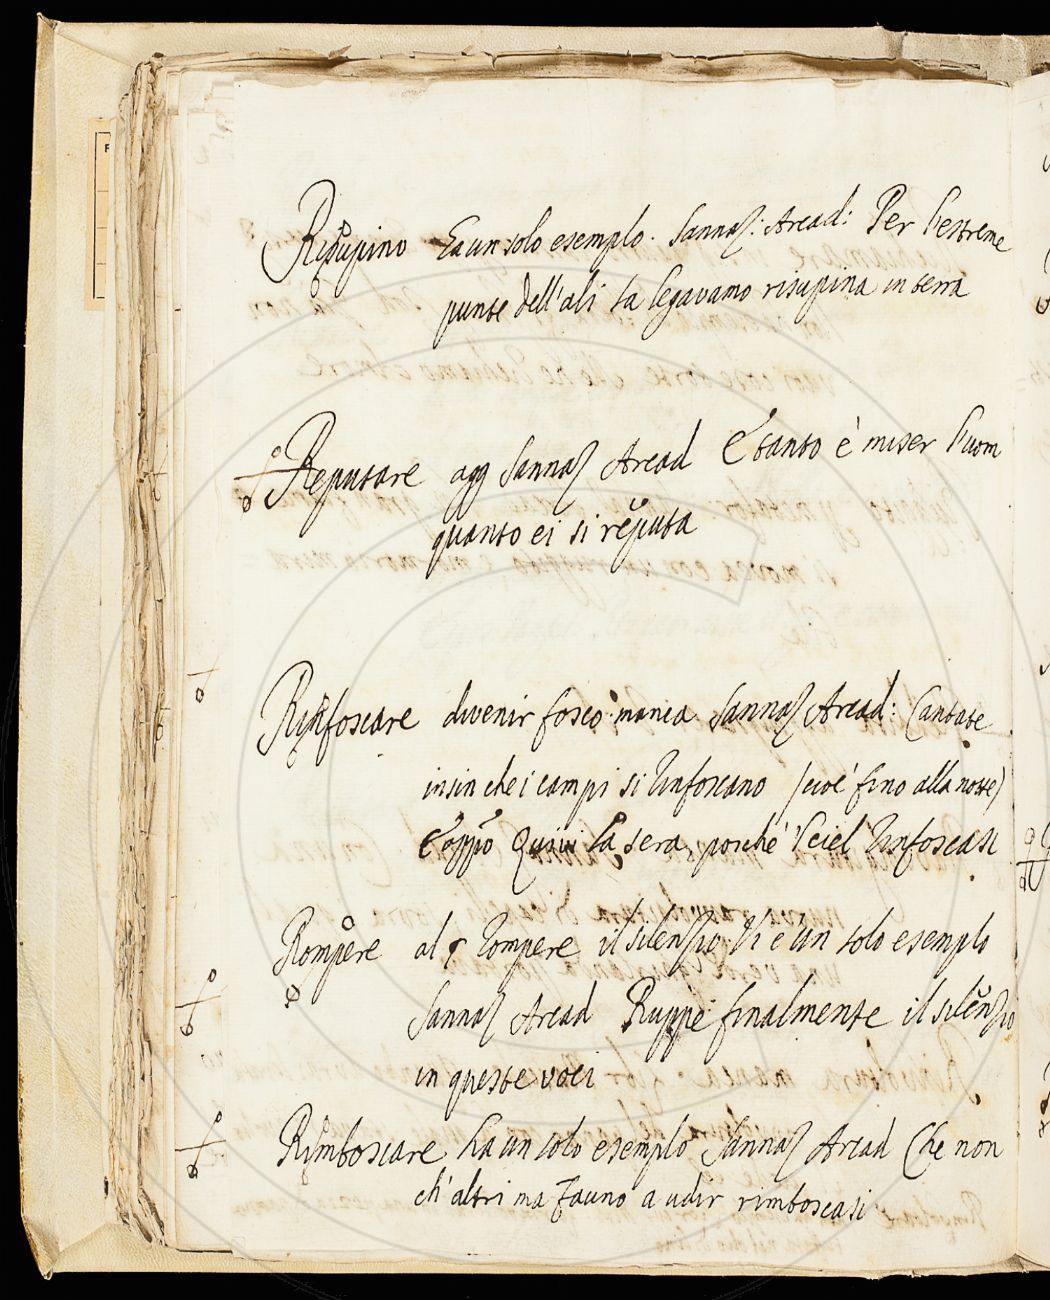 Risupino Ha un solo esemplo. Sannaz: Arcad: Per l'estreme
punte dell'ali la legavamo risupina in terra
Reputare agg Sannaz Arcad E tanto è miser l'uom
quanto ei si reputa
Rinfoscare divenir fosco manca Sannaz Arcad: Cantate
insin che i campi si rinfoscano (cioè fino alla notte)
E oppo Quivi la sera, poiché 'l ciel rinfoscasi
Rompere al § rompere il silenzio Vi è un solo esemplo
Sannaz Arcad Ruppe finalmente il silenzio
in queste voci
Rimboscare ha un solo esemplo Sannaz Arcad Che non
ch'altri ma Fauno a udir rimboscasi